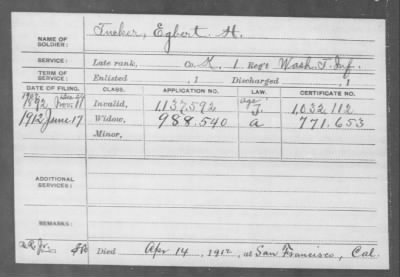 NAME OF SOLDIER: Tucker, Egbert H.
SERVICE: Late rank, Co. K, 1 Reg't Wash. T. Inf.
TERM OF SERVICE: Enlisted , 1 Discharged , 1
DATE OF FILING. CLASS. APPLICATION NO. LAW. CERTIFICATE NO.
1892 Nov. 11 Invalid, 1,137,592 age J. 1,032,112
1912 June 17 Widow, 988.540 a 771.653
Minor,
ADDITIONAL SERVICES:
REMARKS:
Died Apr 14, 1912, at San Francisco, Cal.